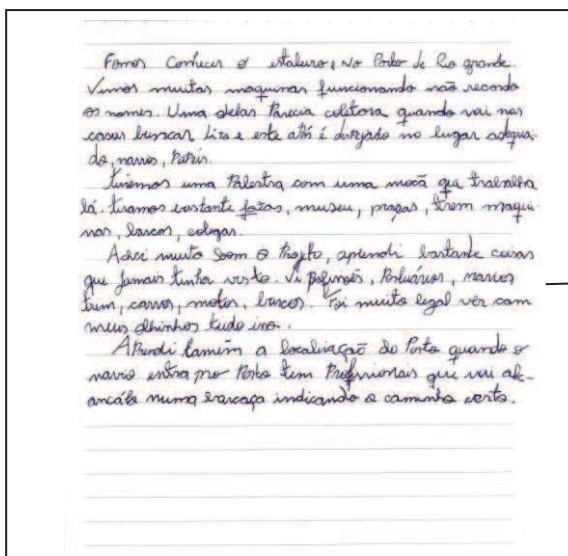 Fomos Conhecer o estaleiro e no Porto de Rio grande.
Vimos muitas maquinas funcionando não recordo
os nomes. Uma delas Parecia coletora quando vai nas
casas buscar Lixo e este após é no lugar adequa-
do, navios,
tivemos uma Palestra com uma moça que trabalha
lá. tiramos bastante fotos, museu, praças, trem maqui-
nas, barcos, colegas.
Achei muito bom o Projeto, aprendi bastante coisas
que jamais tinha visto. Vi Portuários, navios
trem, carros, motos, barcos. Foi muito legal vêr com
meus olhinhos tudo
APrendi tamém a localização do Porto quando o
navio entra pro Porto tem Profissionais que vai al-
numa barcaça indicando o caminho certo.